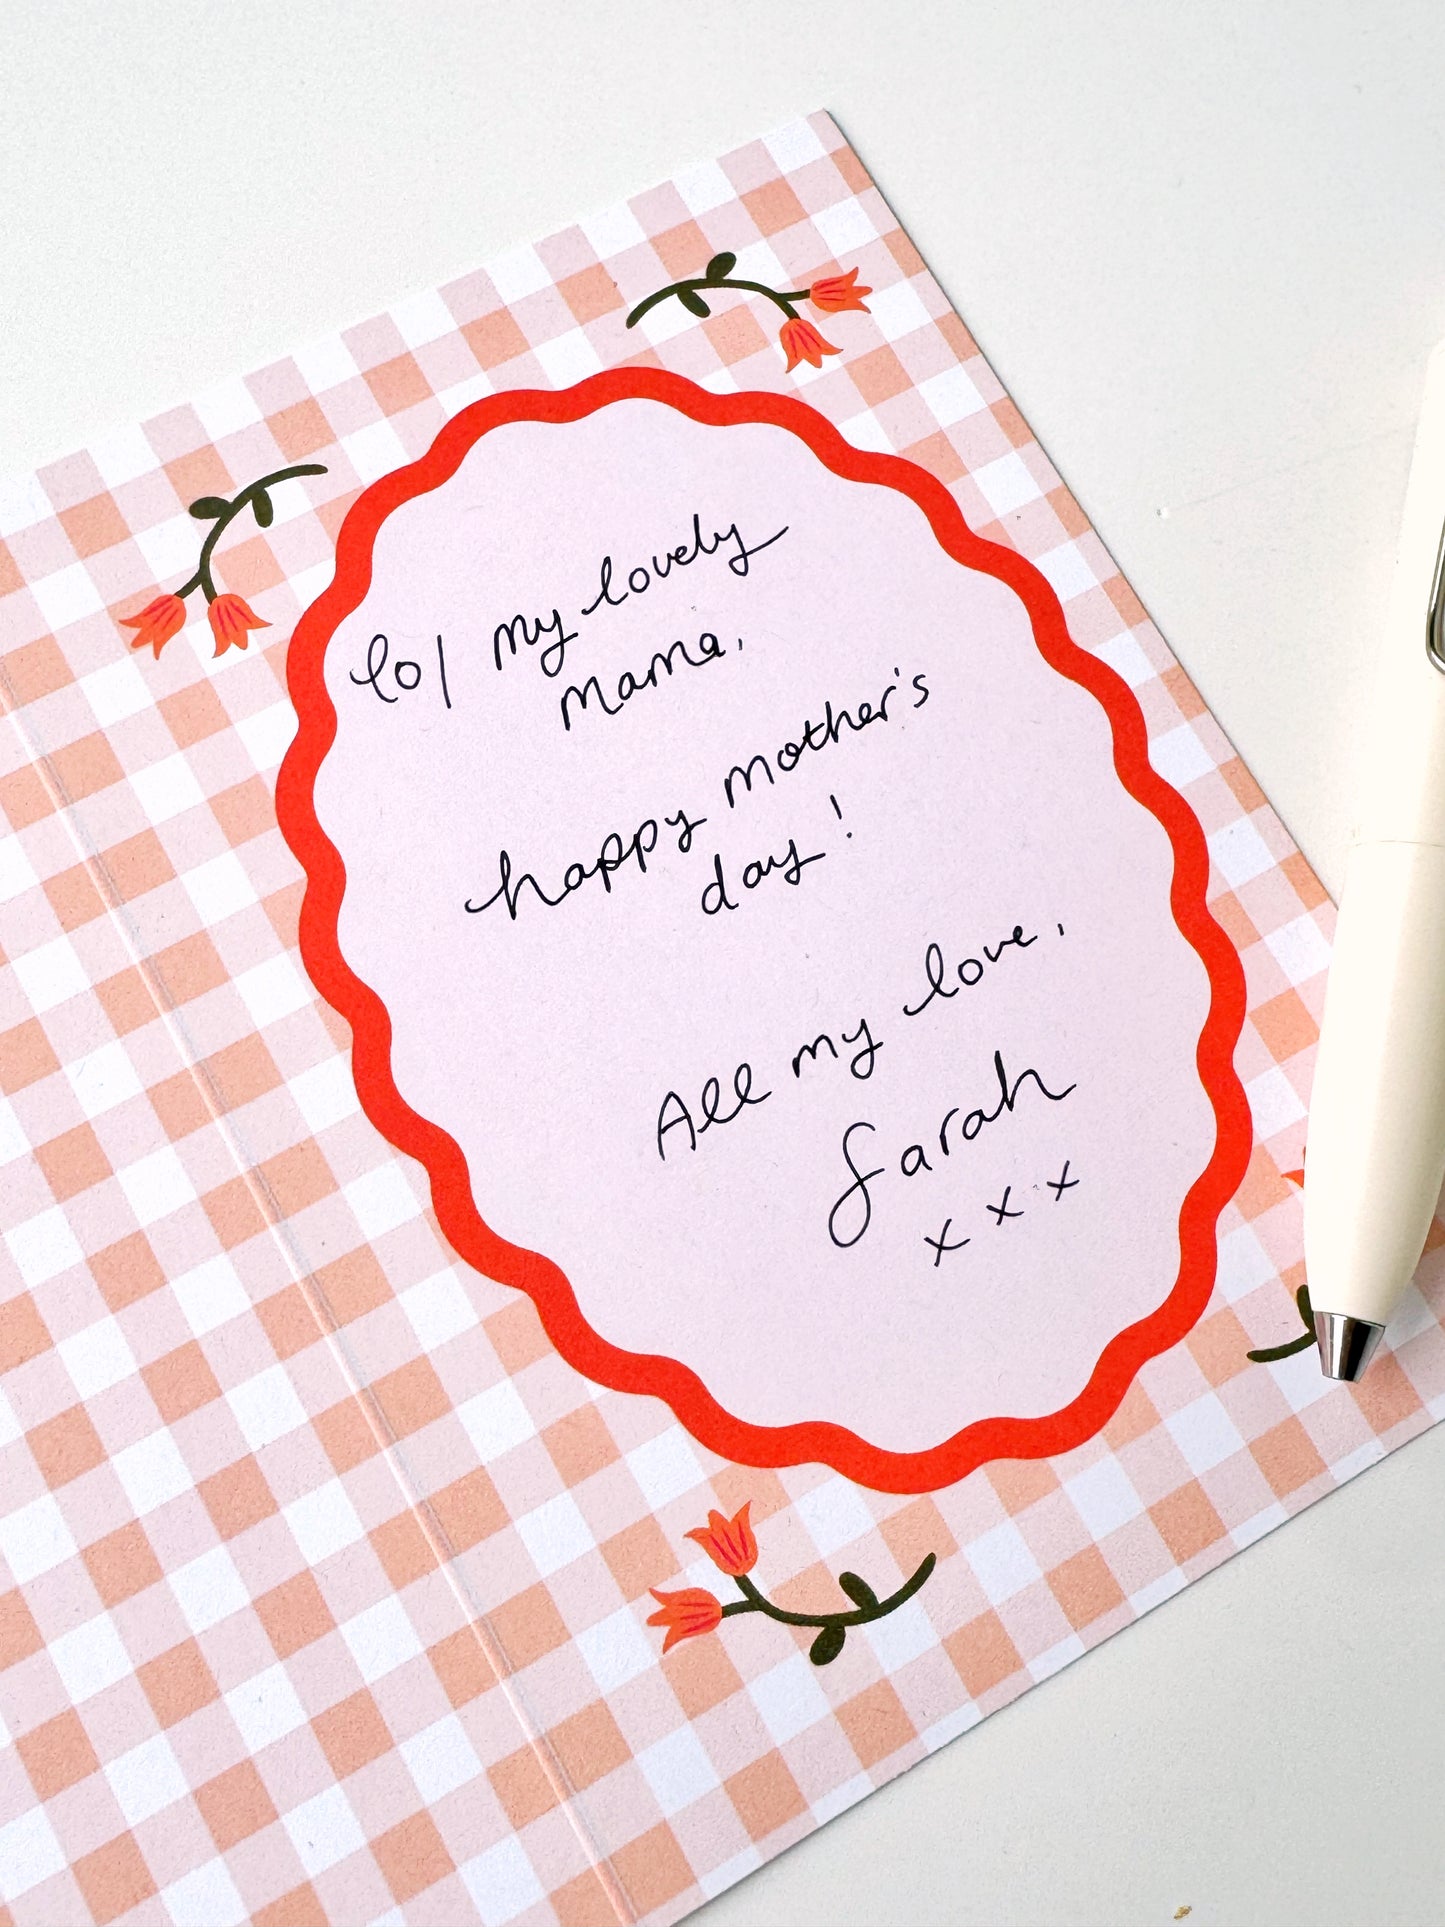 lo/ my lovely
mama,
happy mother's
day!
All my love,
Sarah
x x x